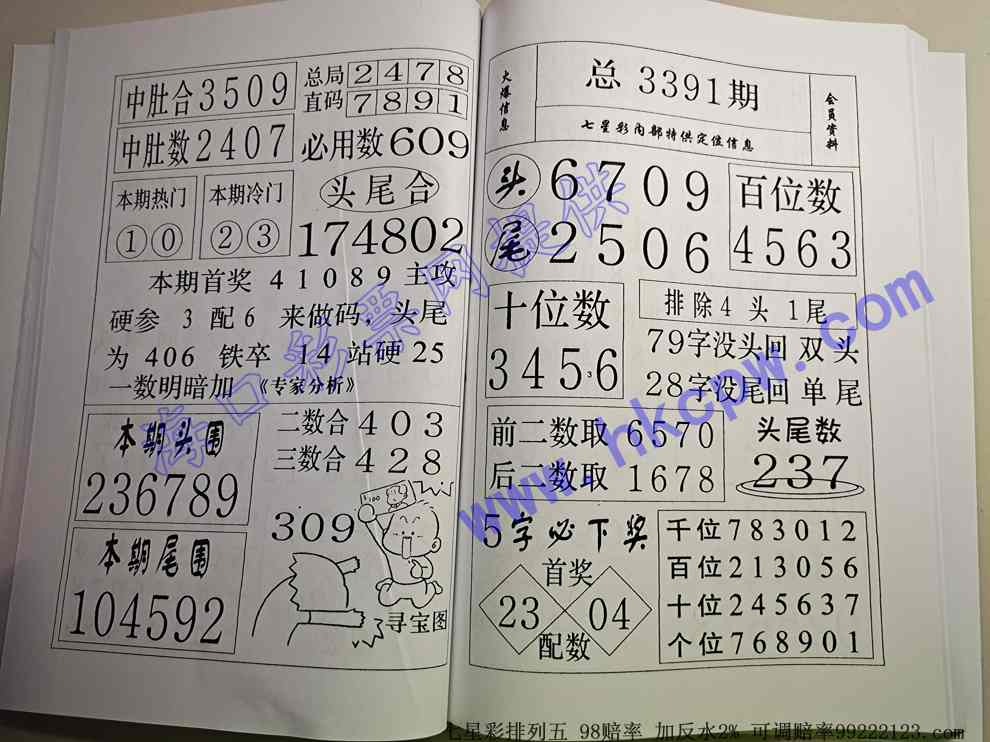 中肚合3509
总局2478
直码7891
中肚数2407
必用数609
本期热门
①⓪
本期冷门
②③
头尾合
174802
本期首奖 41089 主攻
硬参 3 配6 来做码，头尾
为 406 铁卒 14 站硬25
一数明暗加 《专家分析》
本期头围
236789
二数合 403
三数合 428
本期尾围
104592
309
$100
寻宝图
火爆信息
总 3391期
七星彩内部特供定位信息
会员资料
头 6709
尾 2506
百位数
4563
十位数
3456
3
排除4 头 1尾
79字没头回 双 头
28字没尾回 单 尾
前二数取 6570
后二数取 1678
头尾数
237
5字必下奖
首奖
23 04
配数
千位783012
百位213056
十位245637
个位768901
海口彩票网提供
www.hkcpw.com
七星彩排列五 98赔率 加反水2% 可调赔率99222123.com